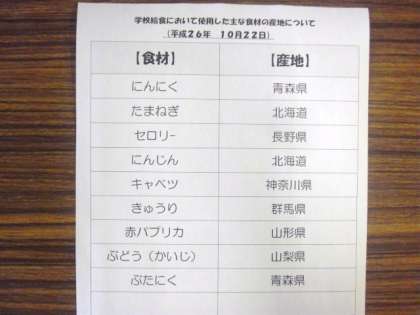 学校給食において使用した主な食材の産地について
（平成２６年　１０月２２日）
【食材】　【産地】
にんにく　青森県
たまねぎ　北海道
セロリー　長野県
にんじん　北海道
キャベツ　神奈川県
きゅうり　群馬県
赤パプリカ　山形県
ぶどう（かいじ）　山梨県
ぶたにく　青森県